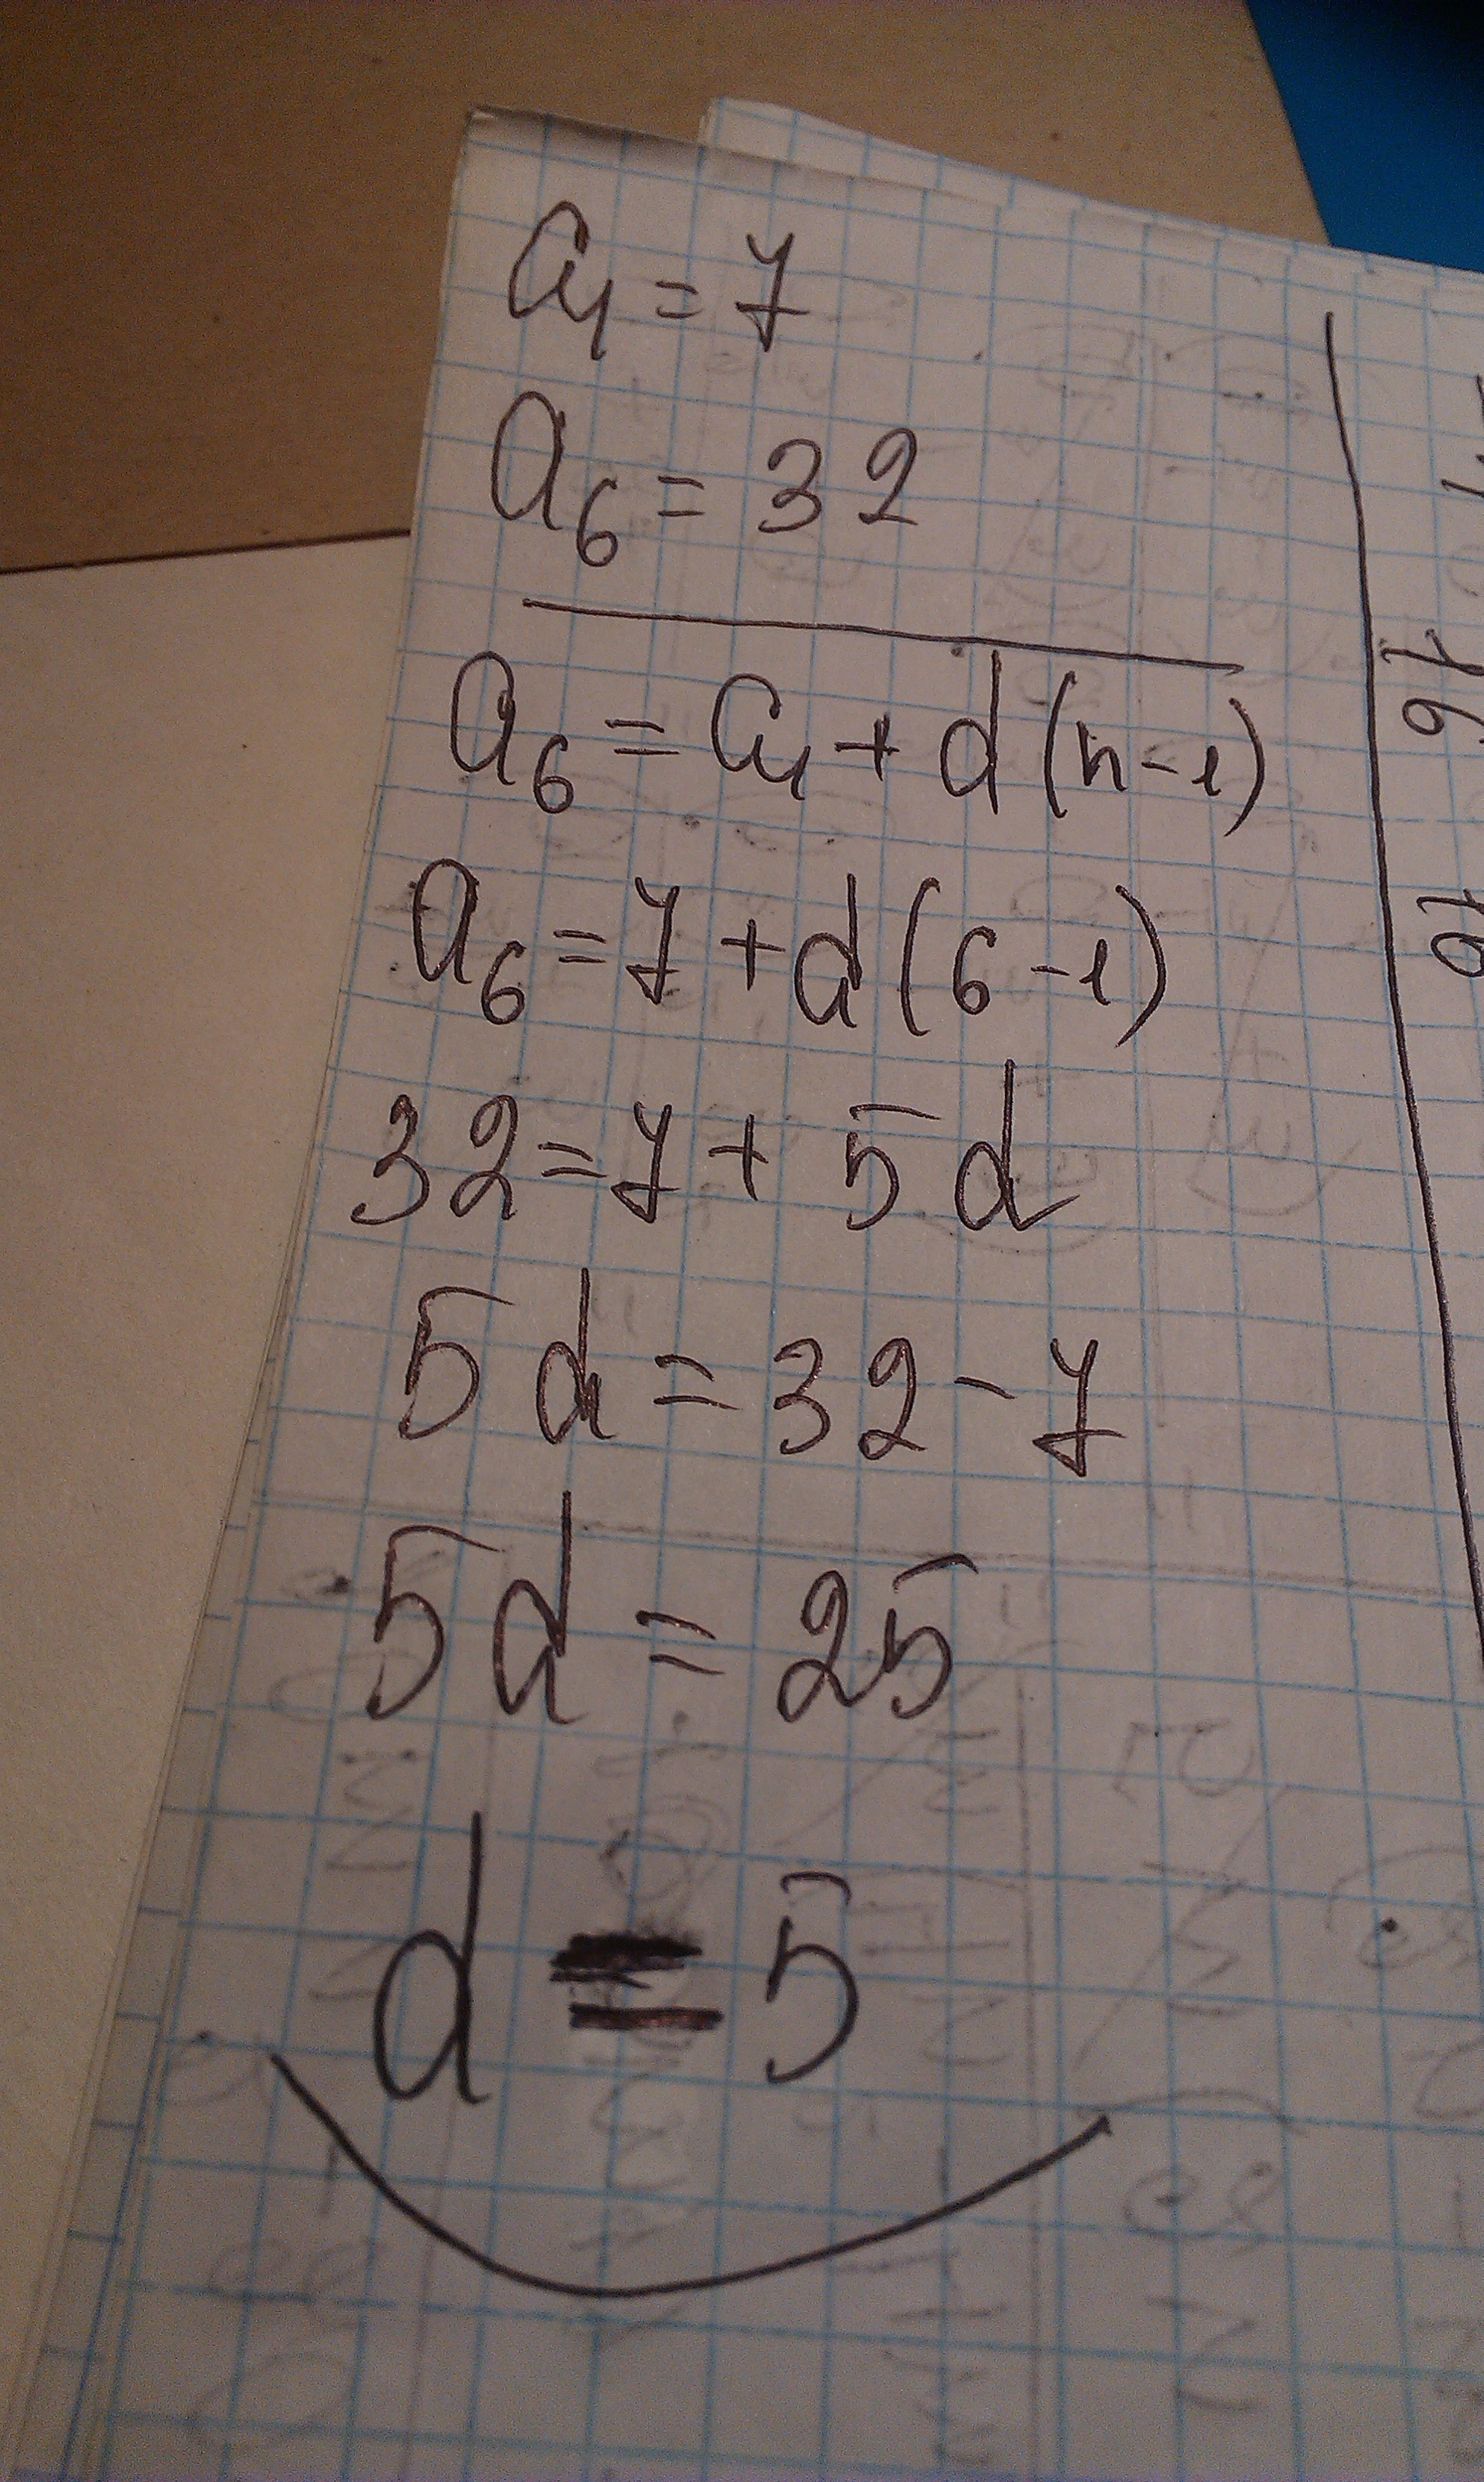 a₁ = 7
a₆ = 32
a₆ = a₁ + d(n-1)
a₆ = 7 + d(6-1)
32 = 7 + 5d
5d = 32 - 7
5d = 25
d = 5